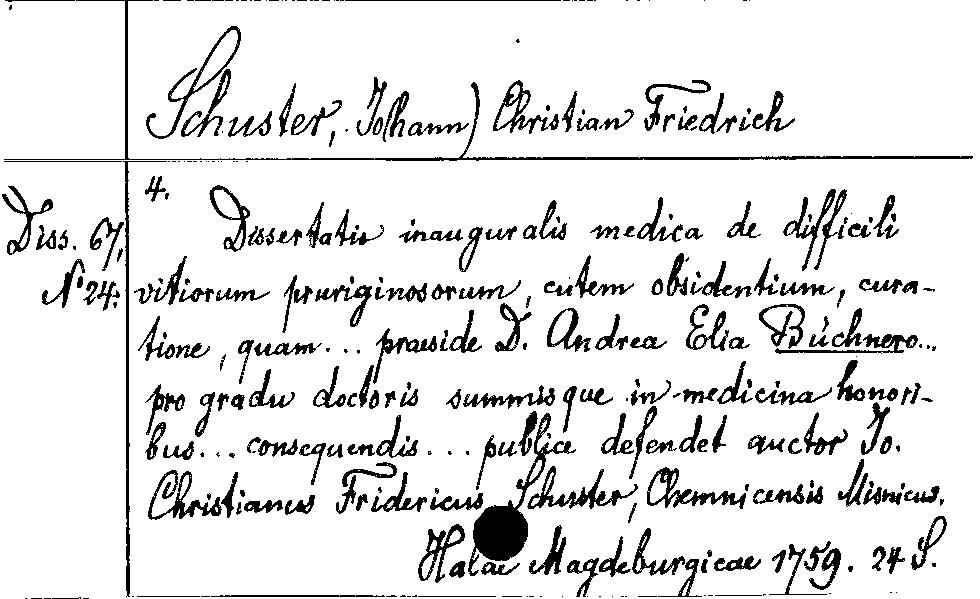 Schuster, Jo(hann) Christian Friedrich
4.
Diss. 67,
N° 24.
Dissertatio inauguralis medica de difficili
vitiorum pruriginosorum, cutem obsidentium, cura-
tione, quam... praeside D. Andrea Elia Büchnero...
pro gradu doctoris summisque in medicina honori-
bus... consequendis... publice defendet auctor Jo.
Christianus Fridericus Schuster, Chemnicensis Misnicus.
Halae Magdeburgicae 1759. 24 S.